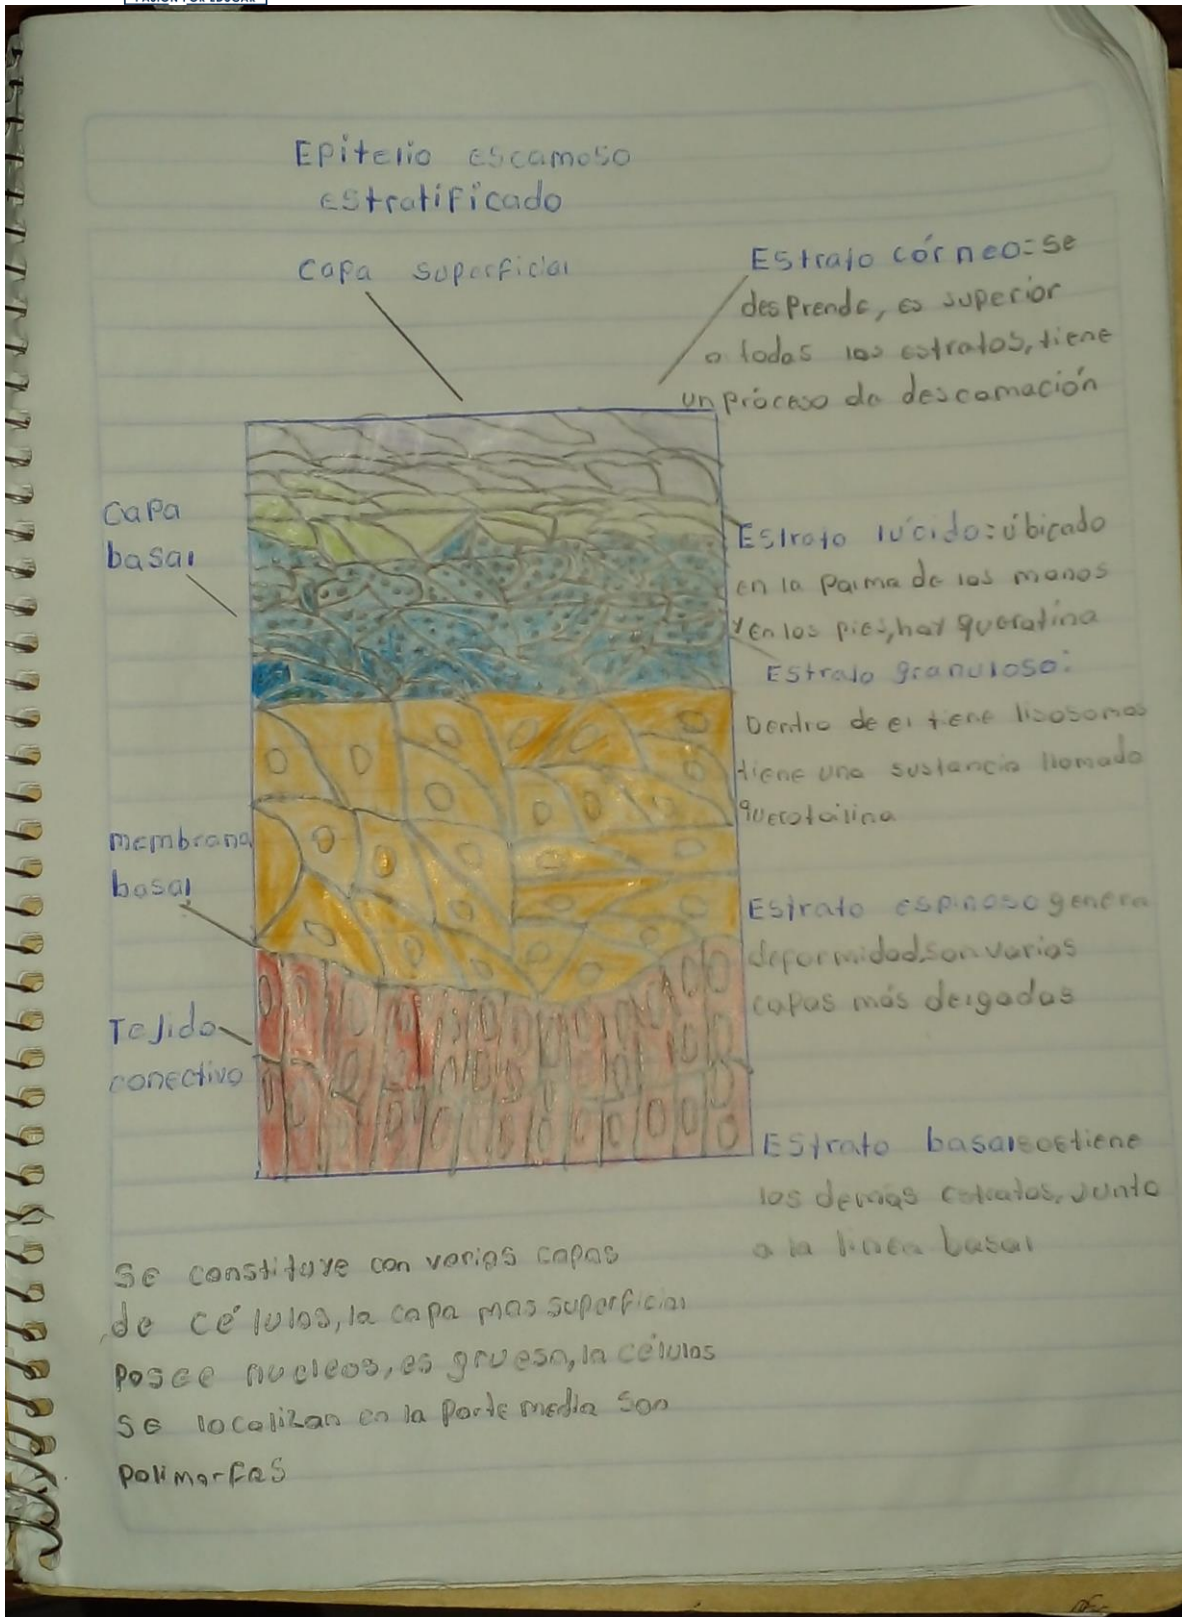 PASIÓN POR EDUCAR
Epitelio escamoso
estratificado
Capa superficial
Estrato córneo: se
desprende, es superior
a todas los estratos, tiene
un próceso de descamación
Capa
basal
Estrato lúcido: úbicado
en la palma de las manos
y en los pies, hay queratina
Estrato granuloso:
Dentro de el tiene lisosomas
tiene una sustancia llamada
membrana
basal
Estrato espinoso genera
deformidad, son varias
capas más delgadas
Tejido
conectivo
Estrato basal sostiene
los demás estratos, junto
a la linea basal
Se constituye con varias capas
de células, la capa mas superficial
posee nucleos, es gruesa, la células
se localizan en la parte media son
polimorfas